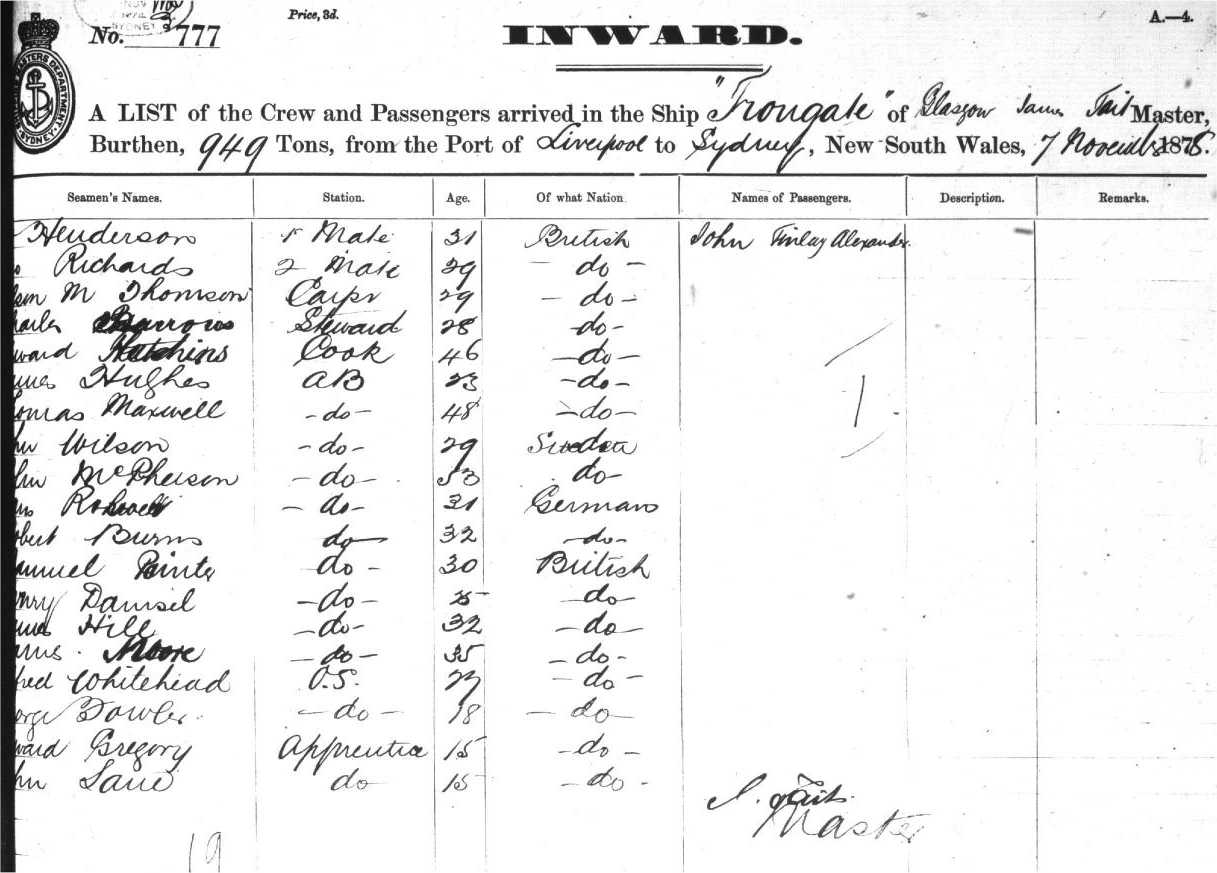 Price, 3d.
A.—4.
No. 777
INWARD.
SYDNEY
MASTERS DEPARTMENT
SYDNEY
A LIST of the Crew and Passengers arrived in the Ship "Trongate" of Glasgow James Tait Master,
Burthen, 949 Tons, from the Port of Liverpool to Sydney, New South Wales, 7 November 1878.
Seamen's Names. Station. Age. Of what Nation. Names of Passengers. Description. Remarks.
Henderson 1 Mate 31 British John Finlay Alexander
Richards 2 Mate 29 - do -
M Thomson Carpr 29 - do -
arles Barrows Steward 28 - do -
ward Hutchins Cook 46 - do -
mes Hughes AB 23 - do -
omas Maxwell - do - 48 - do -
hn Wilson - do - 29 do
hn McPherson - do - 53 do
- do - 31 German
obert Burns do 32 - do -
amuel do - 30 British
enry Damsel - do - - do -
ames Hill - do - 32 - do -
Moore - do - 35 - do -
fred Whitehead O.S. - do -
orge Fowler - do - 18 - do -
ward Gregory Apprentice 15 - do -
hn Lane do 15 - do -
1
J. Tait
Master
19